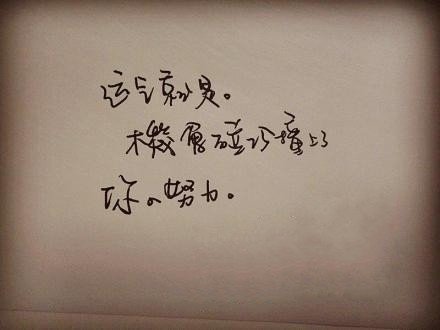 运气就是。
机会碰巧撞上了
你的努力。